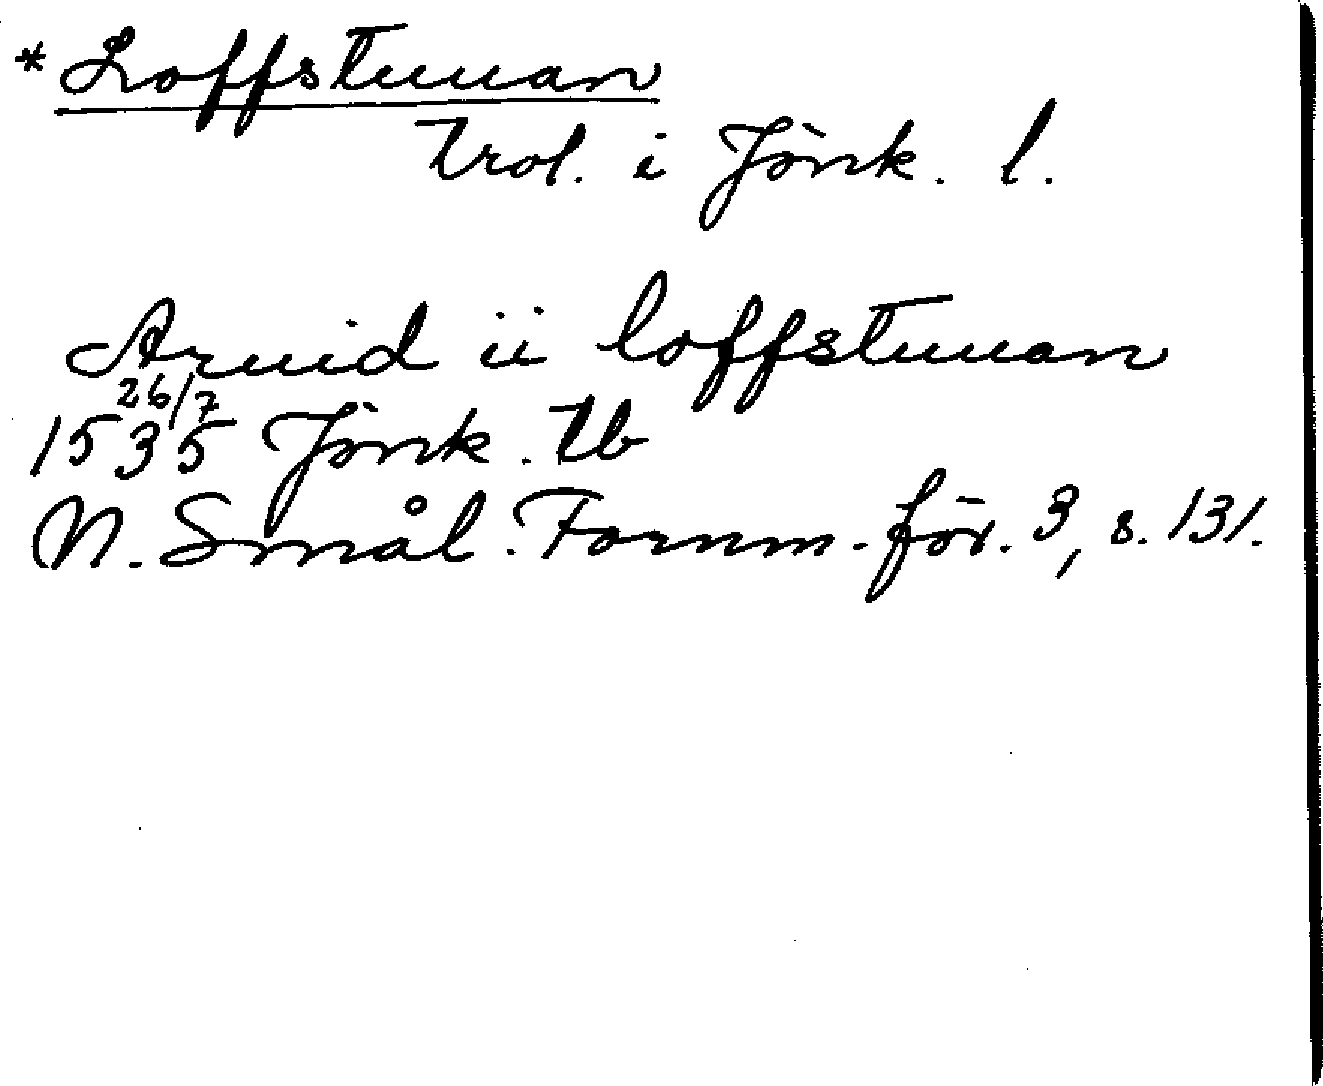 * Loffstuuan
trol. i Jönk. l.
Aruid ii loffstuuan
1535 26/7 Jönk. tb
N. Smål. Fornm. för. 3, s. 131.